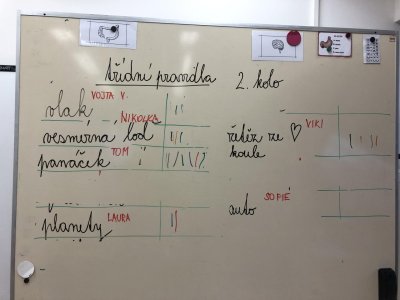 třídní pravidla 2. kolo
vlak VOJTA V.
NIKOLKA
vesmírná loď
panáček TOM
planety LAURA
řetěz ze VIKI
koule
auto SOFIE